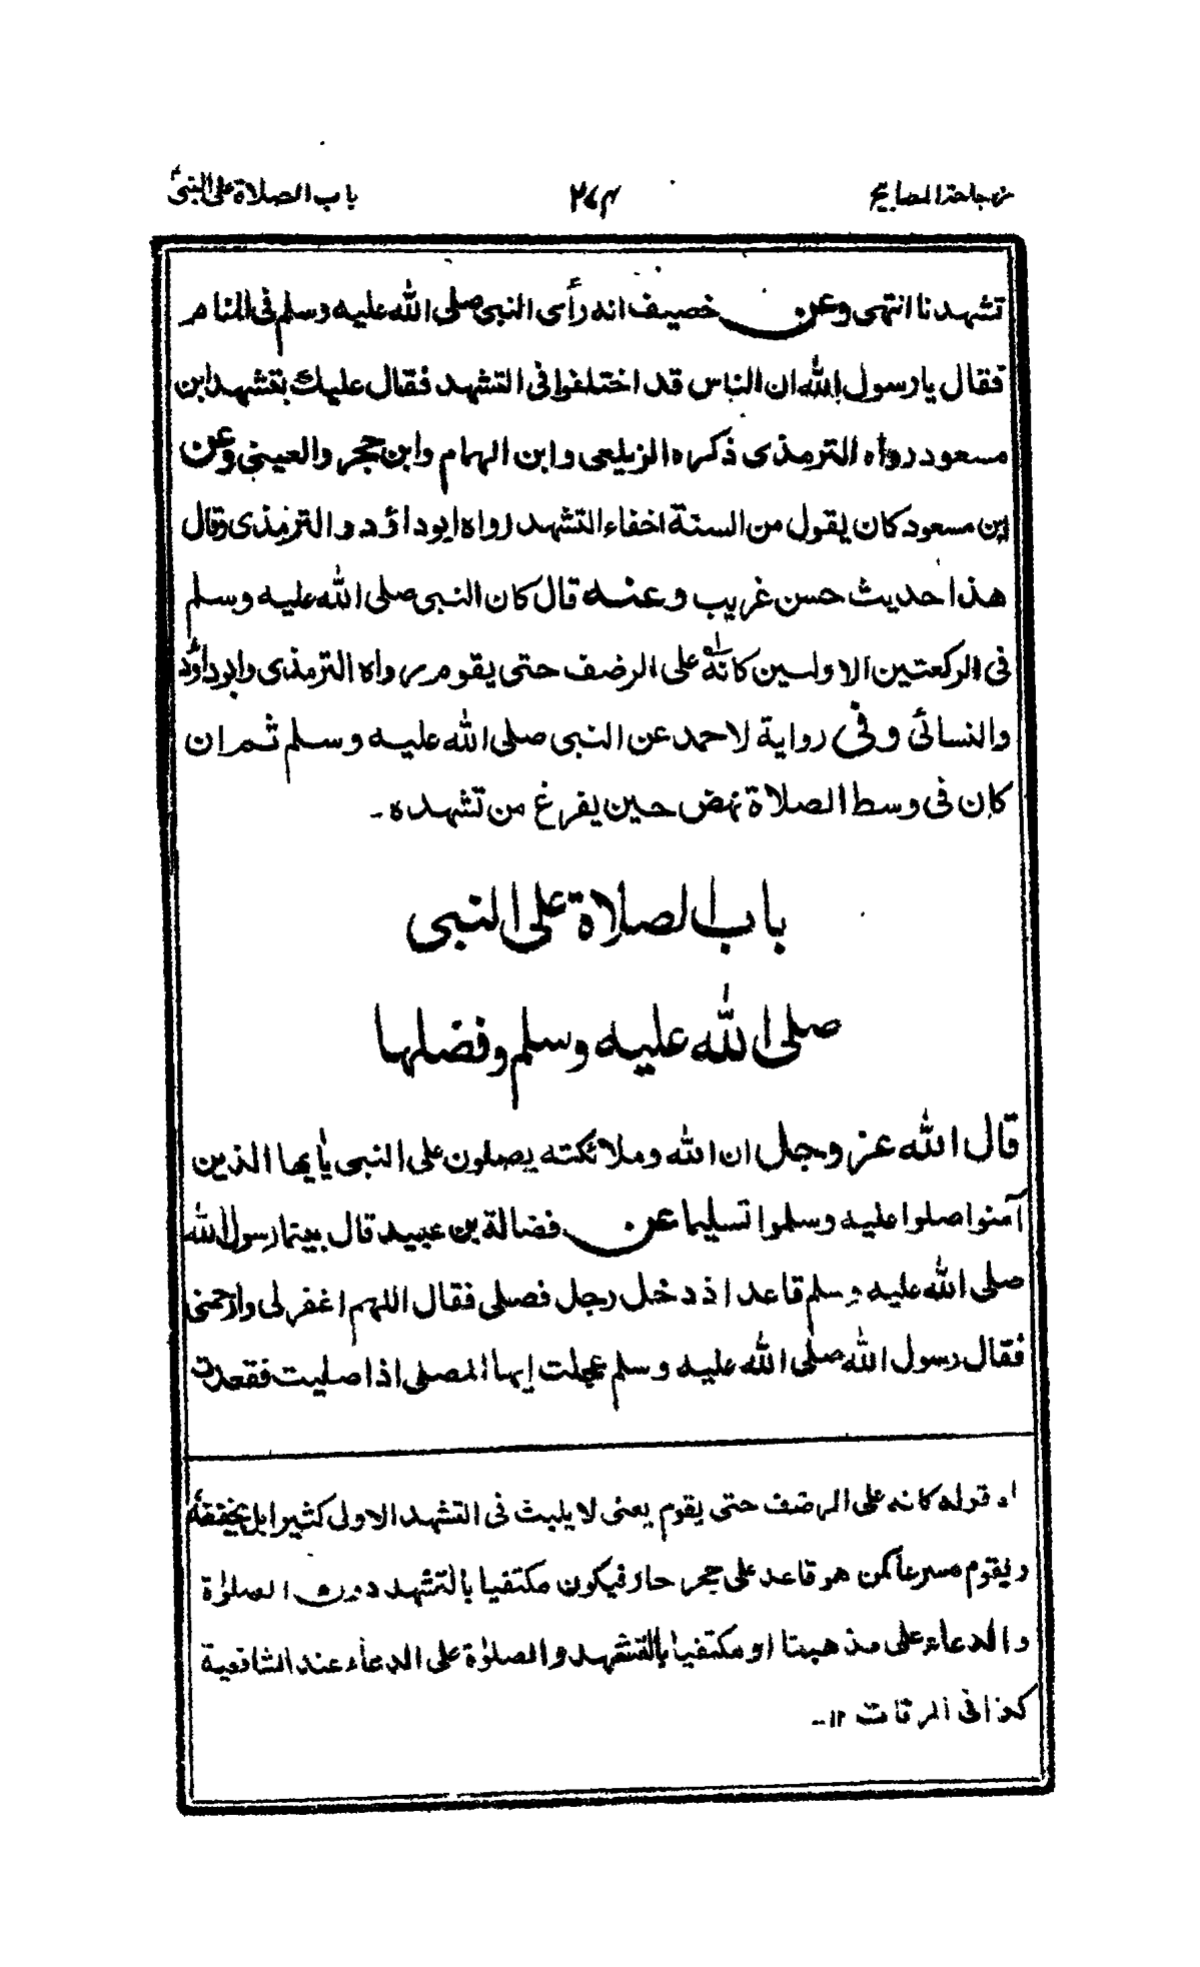 زجاجة المصابيح ٢٧٤ باب الصلاة على النبيؐ
تشهدنا انتهى وعن خصيف انه رأى النبي صلى الله عليه وسلم فى المنام
فقال يا رسول الله ان الناس قد اختلفوا فى التشهد فقال عليك بتشهد ابن
مسعود رواه الترمذى ذكره الزيلعى وابن الهمام وابن حجر والعينى وعن
ابن مسعود كان يقول من السنة اخفاء التشهد رواه ابو داؤد والترمذى وقال
هذا حديث حسن غريب وعنه قال كان النبى صلى الله عليه وسلم
فى الركعتين الاوليين كانه١ على الرضف حتى يقوم رواه الترمذى وابو داؤد
والنسائى وفى رواية لاحمد عن النبى صلى الله عليه وسلم ثم ان
كان فى وسط الصلاة نهض حين يفرغ من تشهده -
باب الصلاة على النبى
صلى الله عليه وسلم وفضلها
قال الله عز وجل ان الله وملائكته يصلون على النبى يأيها الذين
آمنوا صلوا عليه وسلموا تسليما عن فضالة بن عبيد قال بينما رسول الله
صلى الله عليه وسلم قاعد اذ دخل رجل فصلى فقال اللهم اغفر لى وارحمنى
فقال رسول الله صلى الله عليه وسلم عجلت ايها المصلى اذا صليت فقعدت
١ه قوله كانه على الرضف حتى يقوم يعنى لا يلبث فى التشهد الاول كثيرا بل يخففه
ويقوم مسرعا كمن هو قاعد على حجر حار فيكون مكتفيا بالتشهد دون الصلوٰة
والدعاء على مذهبنا او مكتفيا بالتشهد والصلوٰة على الدعاء عند الشافعية
كذا فى المرقات ١٢-